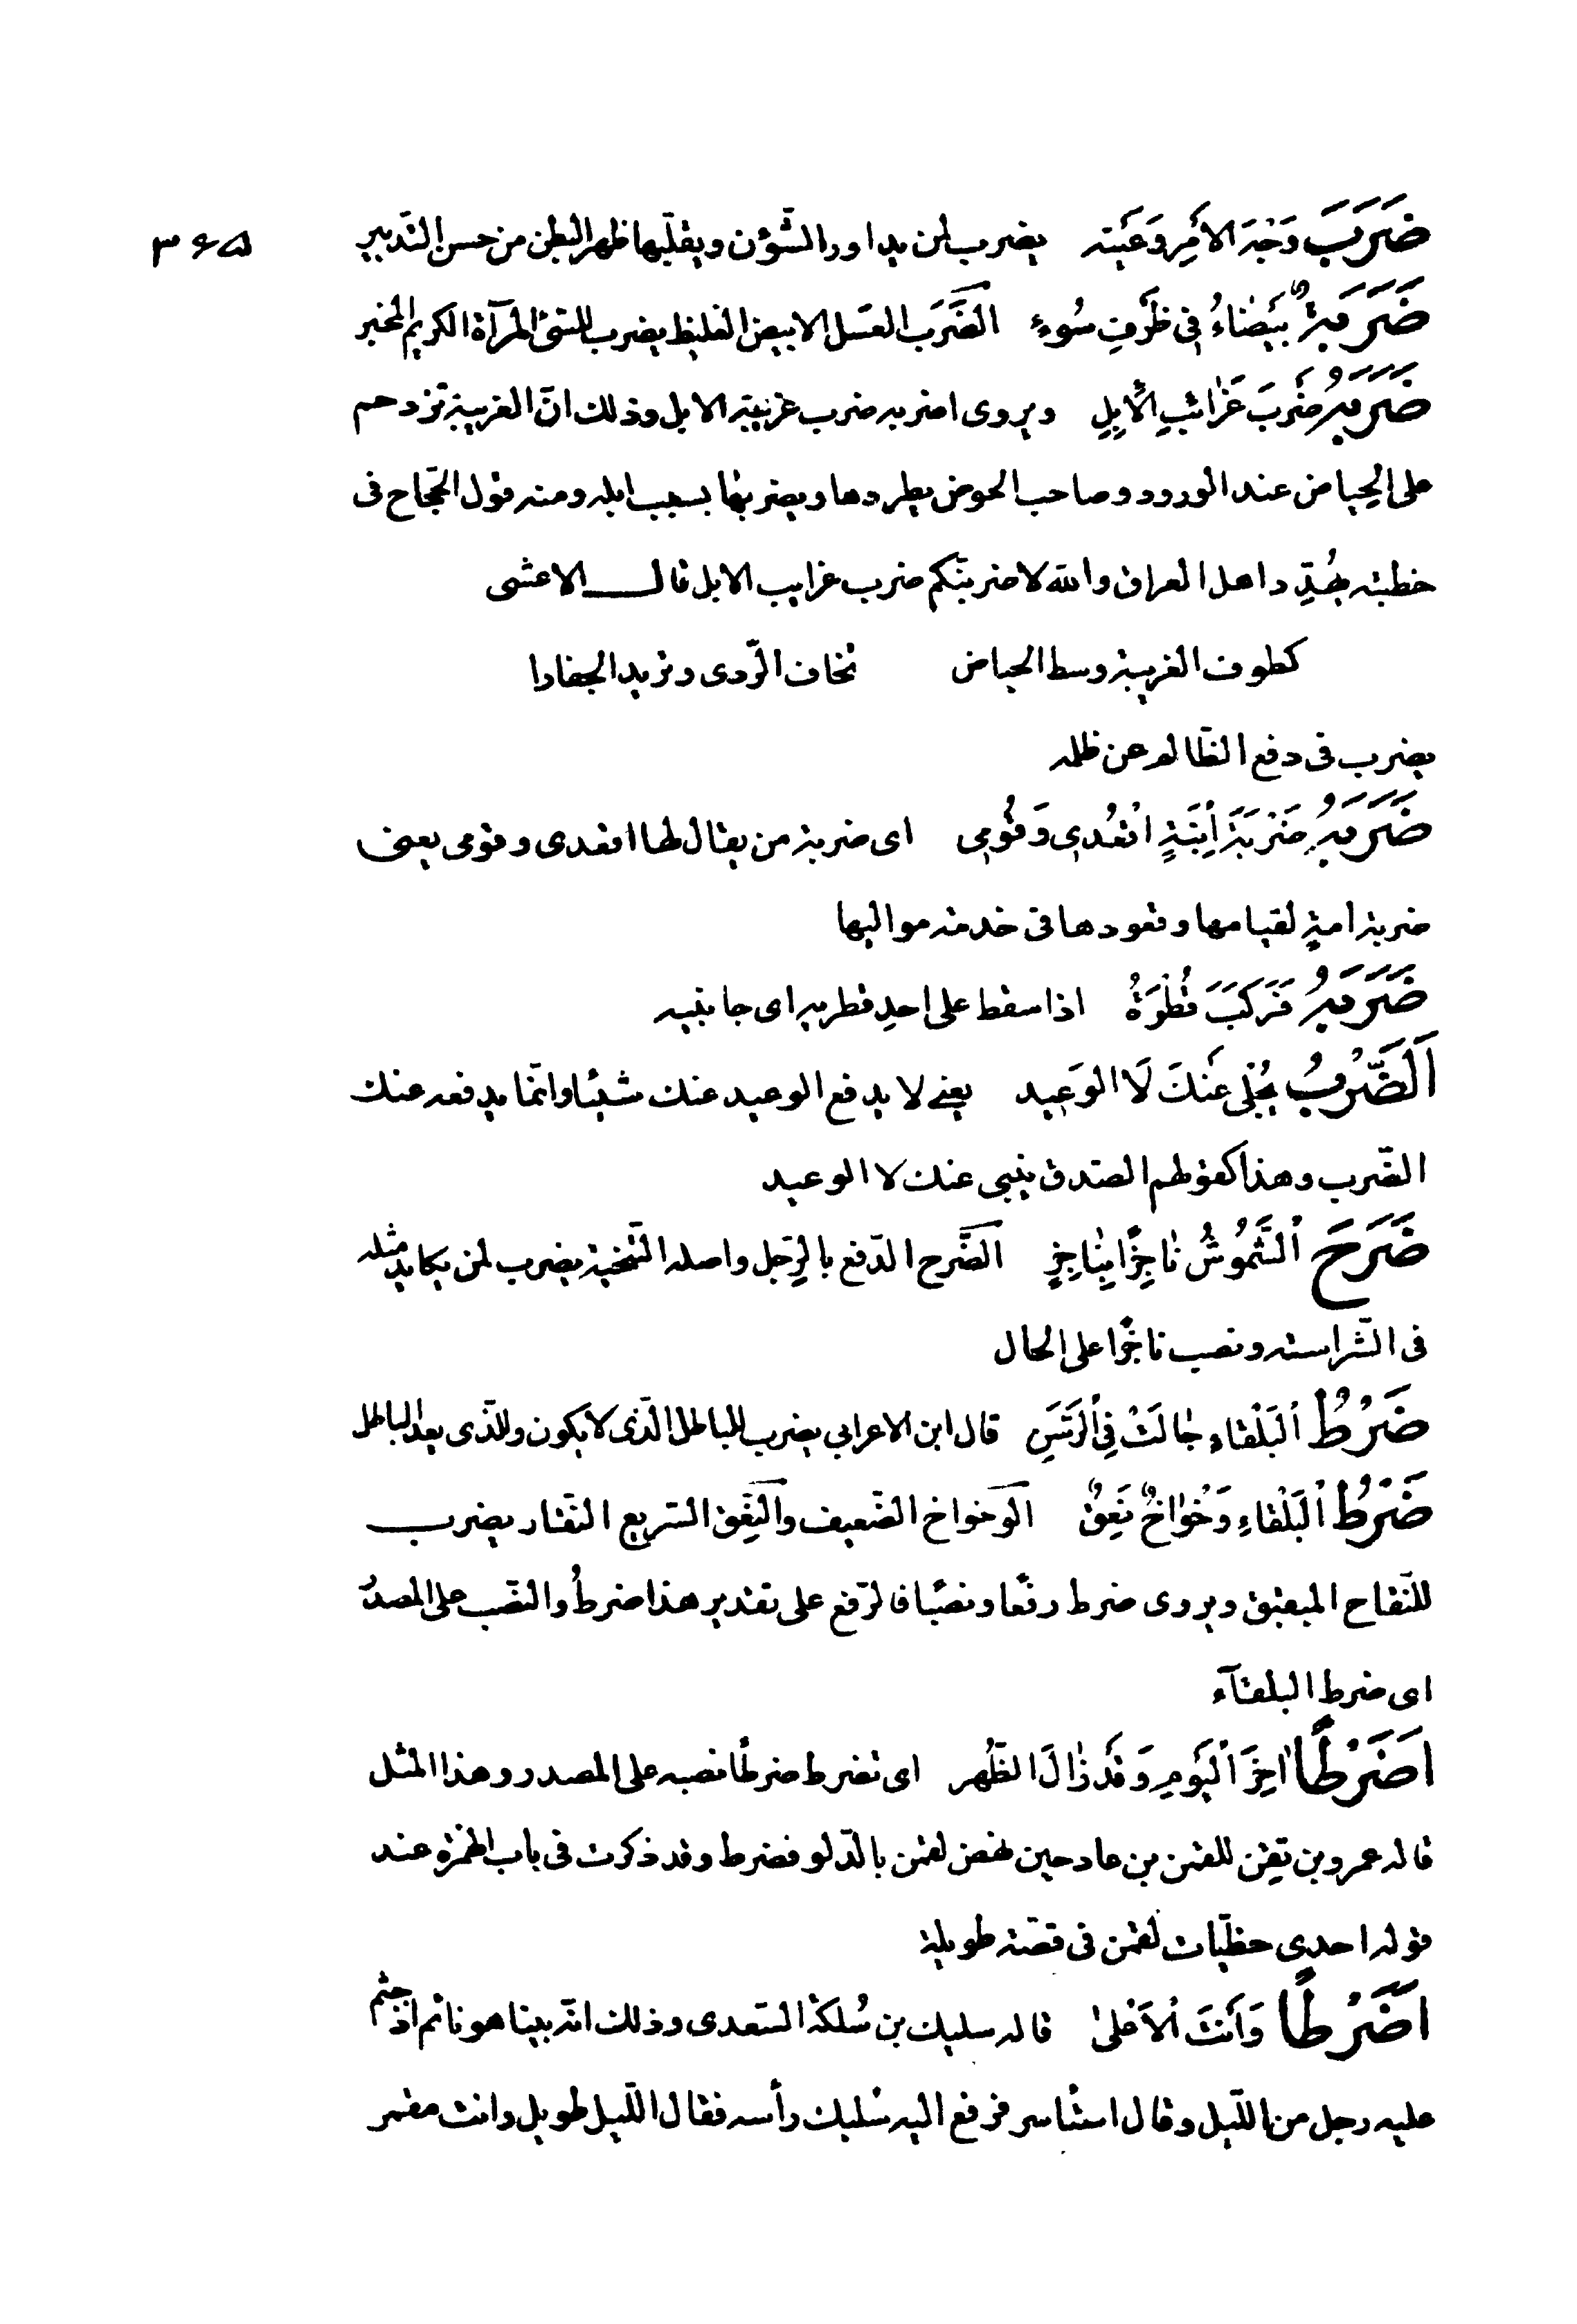 ٣٦٥
ضَرَبَ وَجْهَ الاَمْرِ وَعَيْنَه يضرب لمن يداور الشّؤن ويقلّبها ظهر البطن من حسن التّدبير
ضَرَبَةٌ بَيْضاءُ فِي ظَرْفِ سُوءٍ الضَّرَب العسل الابيض الغليظ يضرب للسّيّئ المرآة الكريم المخبر
ضَرَبَهُ ضَرْبَ غَرٰائبِ الْأِبِلِ ويروى اضربه ضرب غريبة الابل وذلك انّ الغريبة تزدحم
على الحِياض عند الورود وصاحب الحوض يطردها ويضربها بسبب ابله ومنه قول الحجّاج فى
خطبته يهُدِّد اهل العراق والله لاضربنّكم ضرب غرايب الابل قال الاعشى
كطوف الغريبة وسط الحياض تخاف الرّدى وتريد الجفارا
يضرب فى دفع الظّالم عن ظلمه
ضَرَبَهُ ضَرْبَةَ اِبْنَةِ اقْعُدِي وَقُومِي اى ضربة من يقال لها اقعدى وقومى يعنى
ضربة امةٍ لقيامها وقعودها فى خدمة مواليها
ضَرَبَهُ فَرَكَبَ قُطْرَهُ اذا سقط على احدِ قطريه اى جانبيه
اَلضَّرْبُ يُجْلِى عَنْكَ لَا الوَعِيد يعنى لا يدفع الوعيد عنك شيئا وانّما يدفعه عنك
الضّرب وهذا كقولهم الصّدق ينبى عنك لا الوعيد
ضَرَحَ الشَّمُوسُ نٰاجِزًا بِنٰاجِزٍ الضَّرح الدّفع بالرّجل واصله التّنحية يضرب لمن يكايد مثله
فى الشّراسة ونصب ناجزًا على الحال
ضَرْطُ الْبَلْقاءِ جٰالَتْ فِي الرَّسَنِ قال ابن الاعرابي يضرب للباطل الّذى لا يكون وللّذى يعد الباطل
ضَرْطُ الْبَلْقاءِ وَخْوٰاخٌ نَفِقٌ الوَخواخ الضّعيف والنَفِق السّريع النّفاد يضرب
للنّفاح المبقبق ويروى ضرط رفعًا ونصبًا فالرّفع على تقدير هذا ضرطُ والنصّب على المصدر
اى ضرط البلقآء
اَضَرْطًا اٰخِرَ الْيَوْمِ وَقَدْ زٰالَ الظّهر اى تضرط ضرطًا نصبه على المصدر وهذا المثل
قاله عمرو بن تِقِن للقمن بن عاد حين نهض لقمن بالدّلو فضرط وقد ذكرت فى باب الهمزة عند
قوله احدى حظيّات لقمن فى قصّة طويلة
اَضَرْطًا وَاَنْتَ الْاَعْلىٰ قاله سليك بن سُلكة السّعدى وذلك انّه بينا هو نائم اذ جثم
عليه رجل من اللّيل وقال استأسر فرفع اليه سُليك رأسه فقال اللّيل طويل وانت مقمر